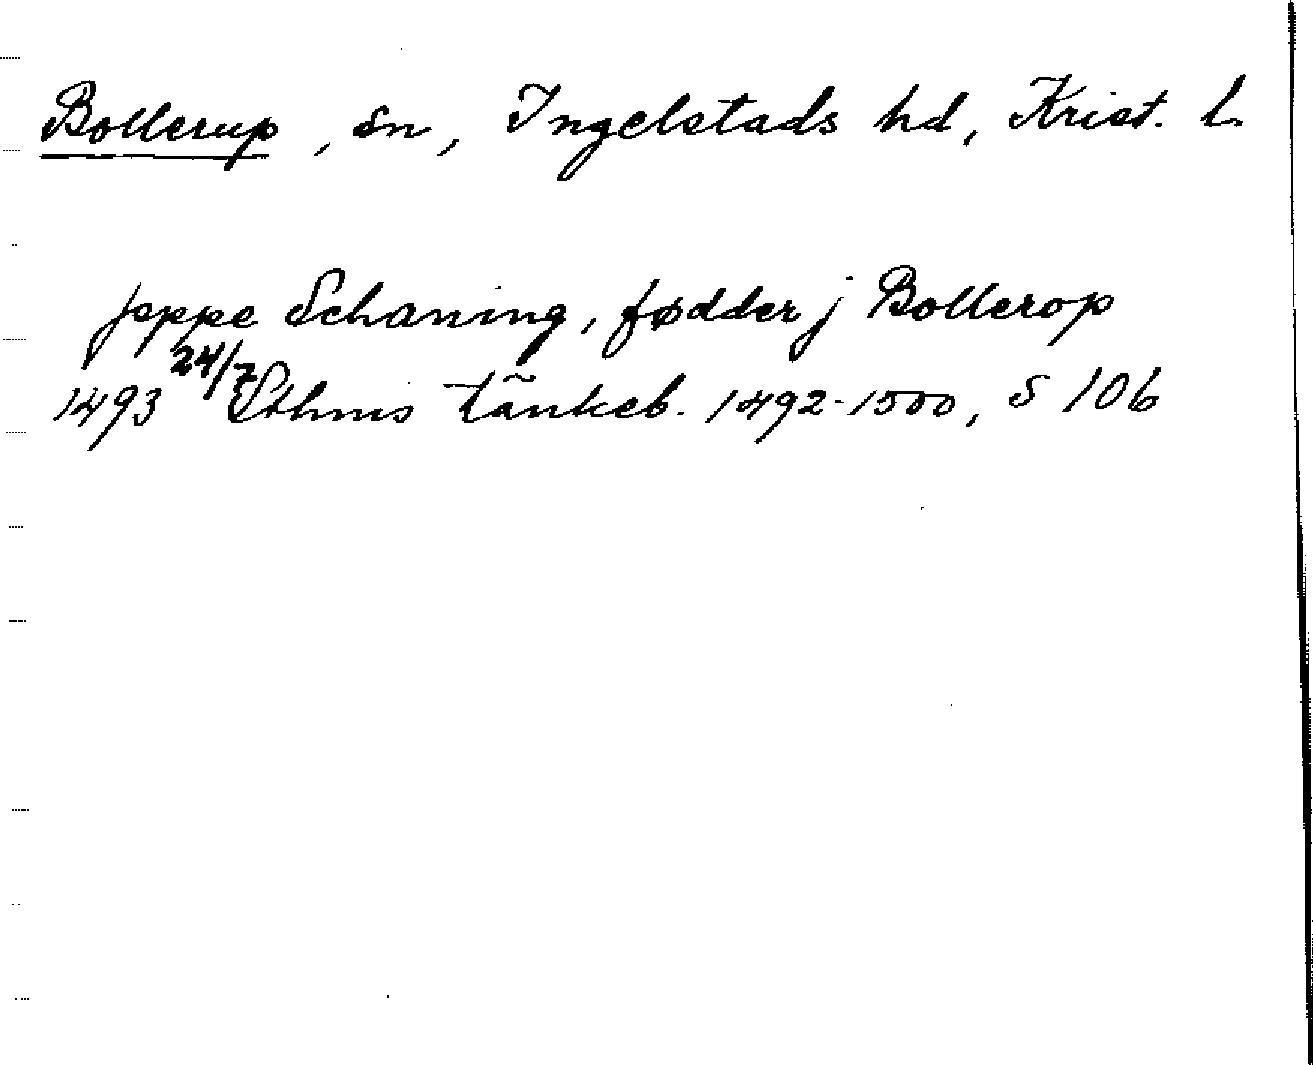 Bollerup, sn, Ingelstads hd, Krist. L.
jeppe Schaning, fødder j Bollerop
1493 24/7 Sthms tänkeb. 1492-1500, s 106